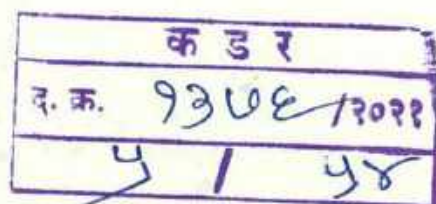 क ड र
द. क्र. १३७६/२०२१
५ / ५४